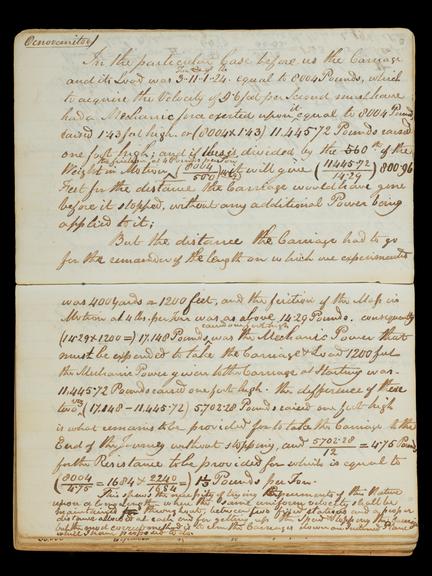 In the particular Case before us the Carriage
and its Load was 3-11-1-24. equal to 8004 Pounds, which
to acquire the Velocity of 9.6 feet per Second must have
had a Mechanic power exerted upon it equal to 8004 Pounds
raised 1.43 feet high. or (8004 x 1.43) 11.445.72 Pounds raised
one foot high; and if this is divided by the 560th of the
the friction at 4 Pounds per Ton
Weight in Motion (8004/560) it will give (11445.72/14.29) 800.96
Feet for the distance the Carriage would have gone
before it stopped, without any additional Power being
applied to it;
But the distance the Carriage had to go
for the remainder of the length on which we experimented
was 400 yards = 1200 feet, and the friction of the Mass in
Motion at 4 lbs. per Ton was as above 14.29 Pounds. consequently
raised one foot high
(14.29 x 1200 =) 17.148 Pounds, was the Mechanic Power that
must be expended to take the Carriage & Load 1200 feet
the Mechanic Power given to the Carriage at Starting was
11.445.72 Pounds raised one foot high. the difference of these
two (17.148 - 11.445.72) 5.702.28 Pounds raised one foot high
is what remains to be provided for to take the Carriage to the
End of the Journey without stopping, and 5.702.28/12 = 4.75 Pounds
for the Resistance to be provided for which is equal to
(8004/4.75 = 1684 & 2240/1684 =) 1⅓ Pounds per Ton.
This shews the necessity of trying Experiments of this Nature
upon a long Length where the same uniform velocity shall be
maintained throughout, between two fixed stations and a proper
distance allowed at each end for getting up the Speed & stopping the Carriage
but the most correct method is to run the Carriages down an Inclined Plane
which I have proposed to do.